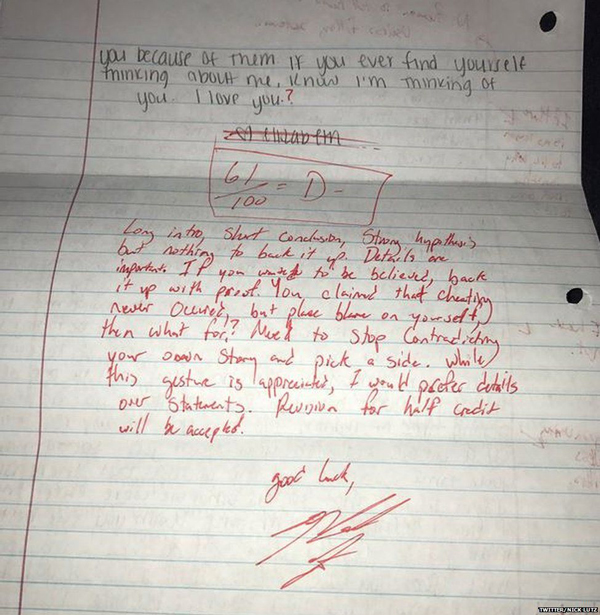 you because of them if you ever find yourself
thinking about me, know I'm thinking of
you. I love you.?
61/100 = D-
Long intro, Short Conclusion, Strong hypothesis
but nothing to back it up. Details are
important. If you want to be believed, back
it up with proof. You claimed that cheating
never occured, but place blame on yourself,
then what for? Need to stop contradicting
your own story and pick a side. While
this gesture is appreciated, I would prefer details
over statements. Revision for half credit
will be accepted.
good luck,
TWITTER/NICK LUTZ